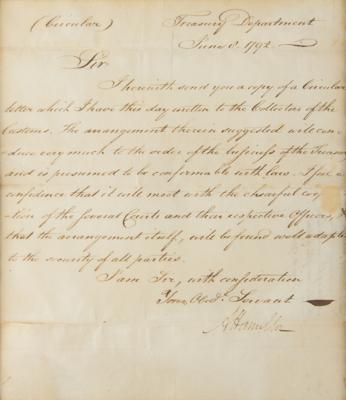 (Circular)
Treasury Department
June 8. 1792.
Sir
I herewith send you a copy of a Circular
letter which I have this day written to the Collectors of the
Customs. The arrangement therein suggested will con-
duce very much to the order of the business of the Treasury
and is presumed to be conformable with law. I have a
confidence that it will meet with the chearful
tion of the several Courts and their respective Officers, &
that the arrangement itself, will be found well adapted
to the security of all parties.
I am Sir, with consideration
Your Obedt. Servant
A Hamilton